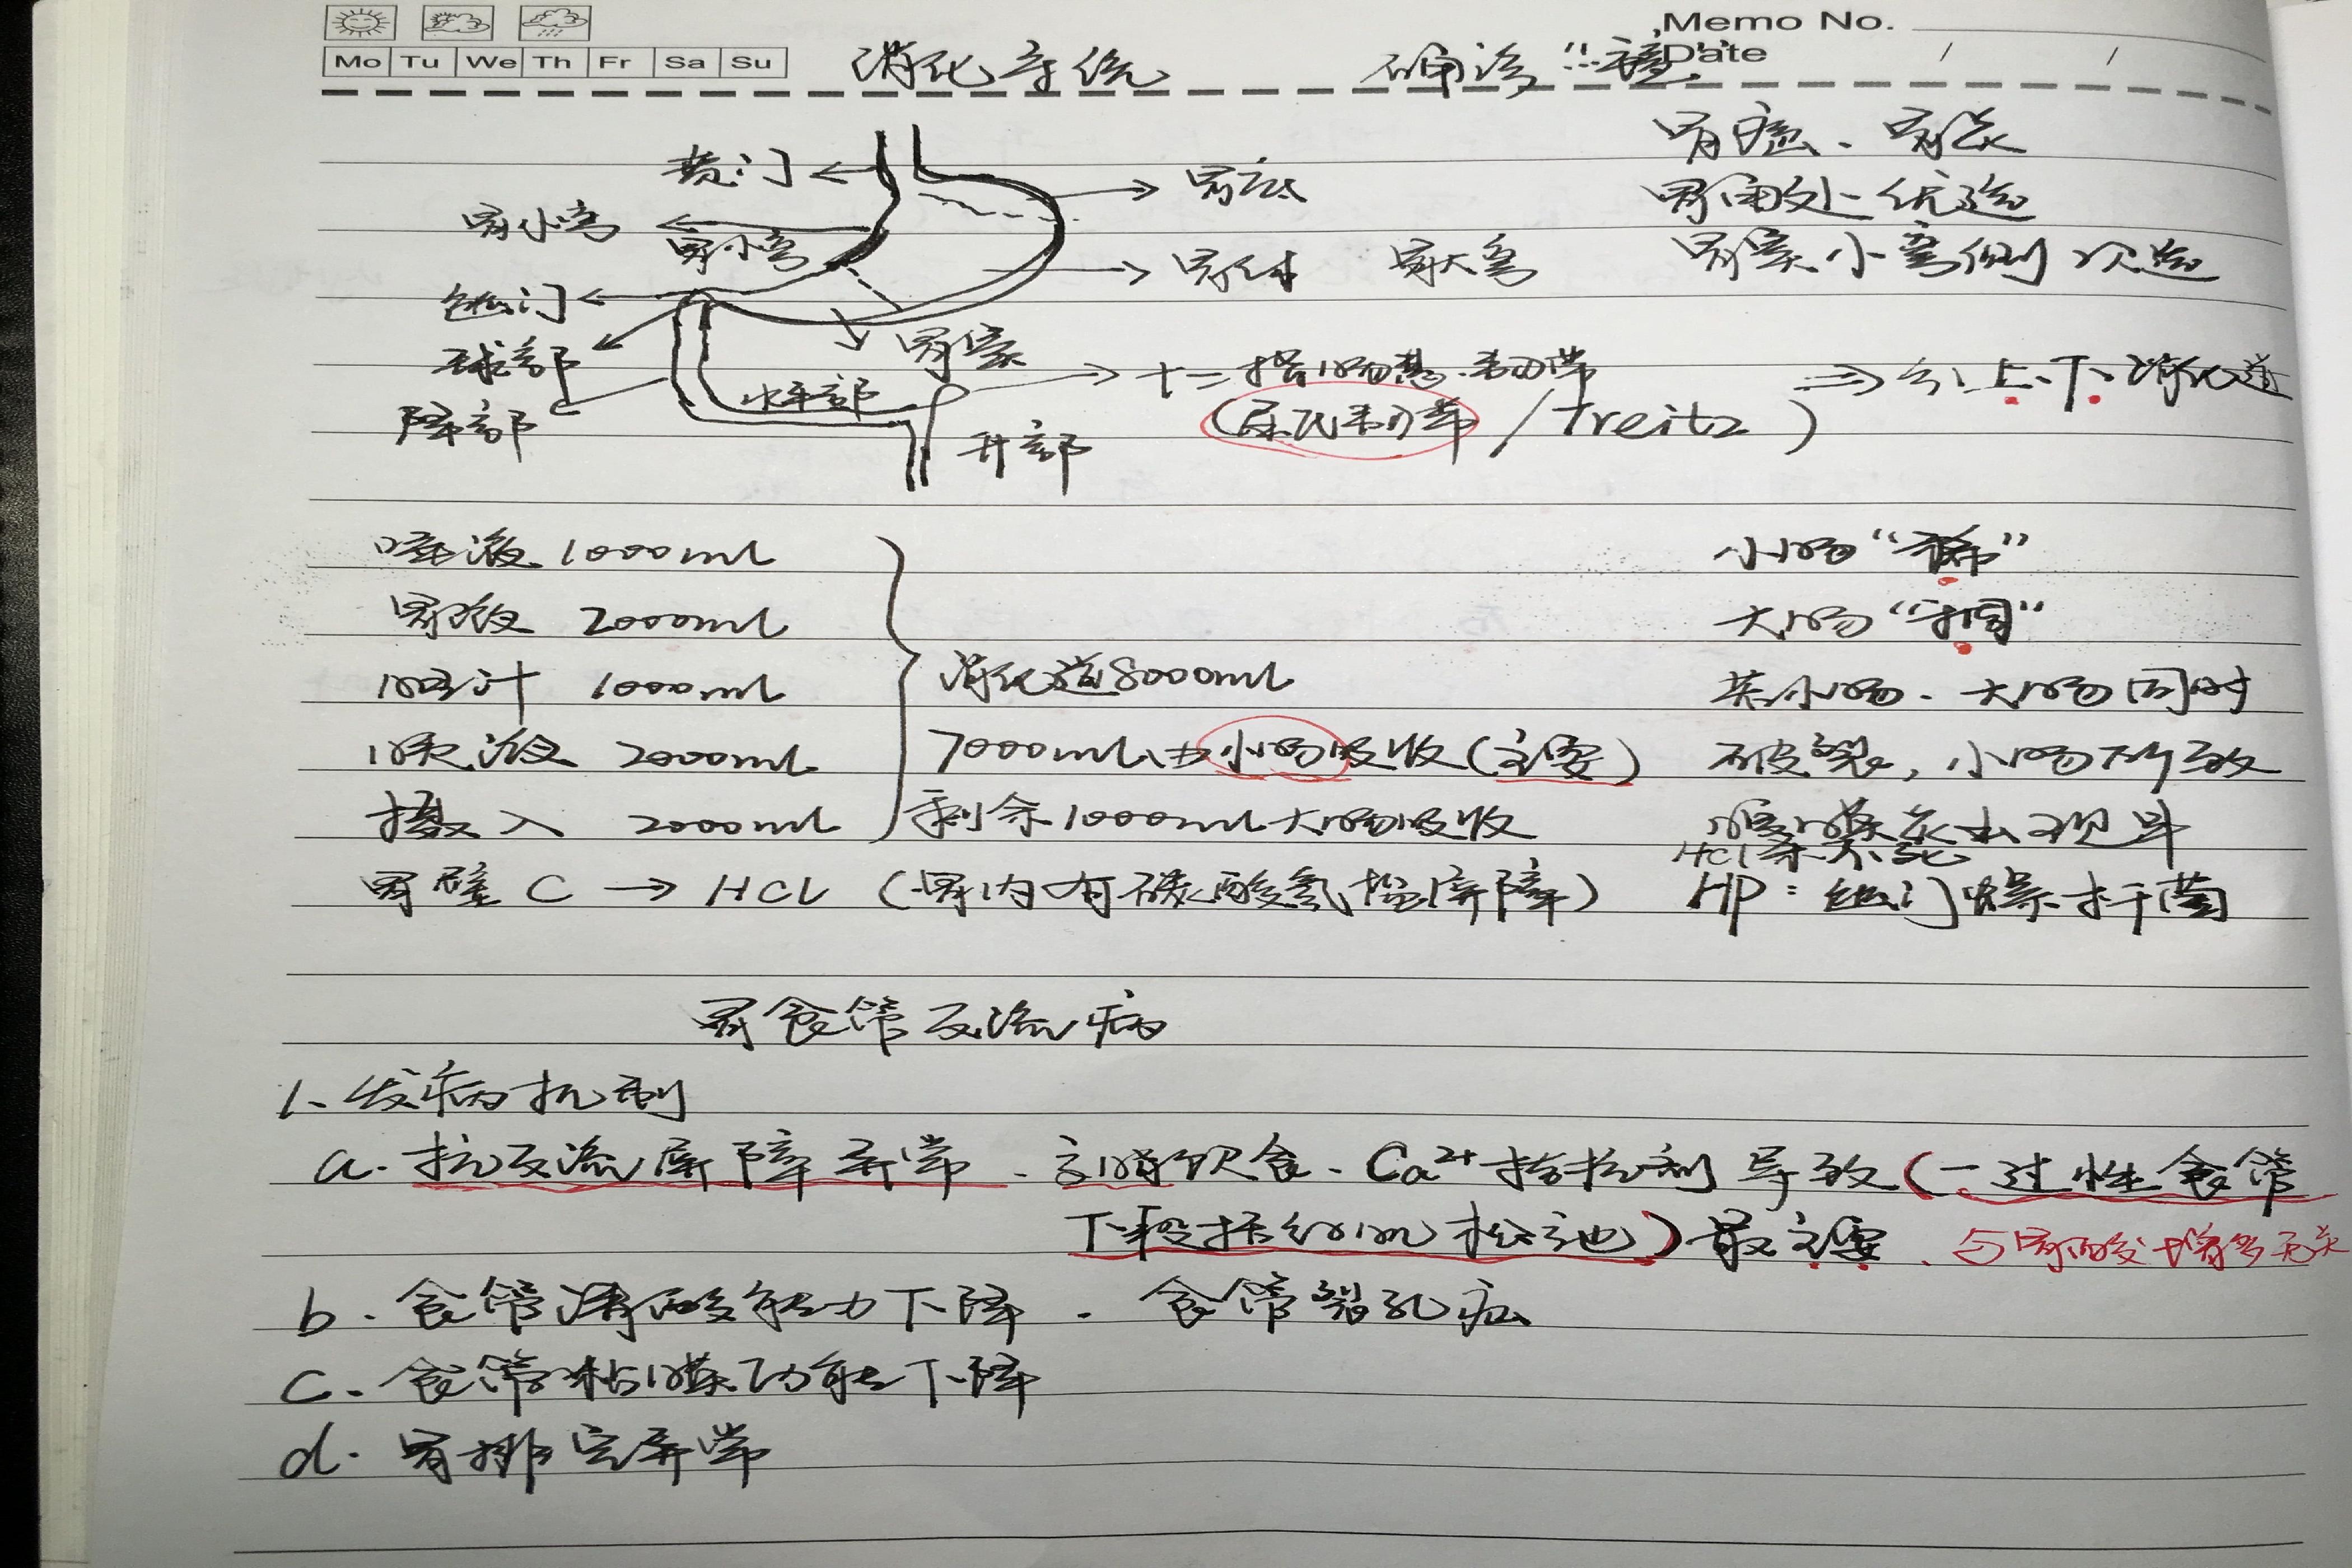 Memo No.
Mo Tu We Th Fr Sa Su
Date / /
消化系统
确诊
贲门
胃底
胃癌、胃炎
胃小弯
胃小弯
胃角处优选
胃体 胃大弯
胃窦小弯侧次选
幽门
球部
胃窦
降部
水平部
升部
十二指肠悬韧带
(屈氏韧带/Treitz)
⇒ 分上、下消化道
唾液 1000ml
胃液 2000ml
肠汁 1000ml
胰液 2000ml
摄入 2000ml
消化道8000ml
7000ml由小肠吸收(主要)
剩余1000ml大肠吸收
小肠“稀”
大肠“稠”
若小肠、大肠同时
破裂,小肠所致
腹膜炎出现早
胃壁C → HCl (胃内有碳酸氢盐屏障)
HCl杀不死
HP:幽门螺杆菌
胃食管反流病
1、发病机制
a. 抗反流屏障异常. 高脂饮食、Ca²⁺拮抗剂导致(一过性食管
下段括约肌松弛)最主要. 与胃酸增多无关
b. 食管清酸能力下降. 食管裂孔疝
c. 食管粘膜功能下降
d. 胃排空异常